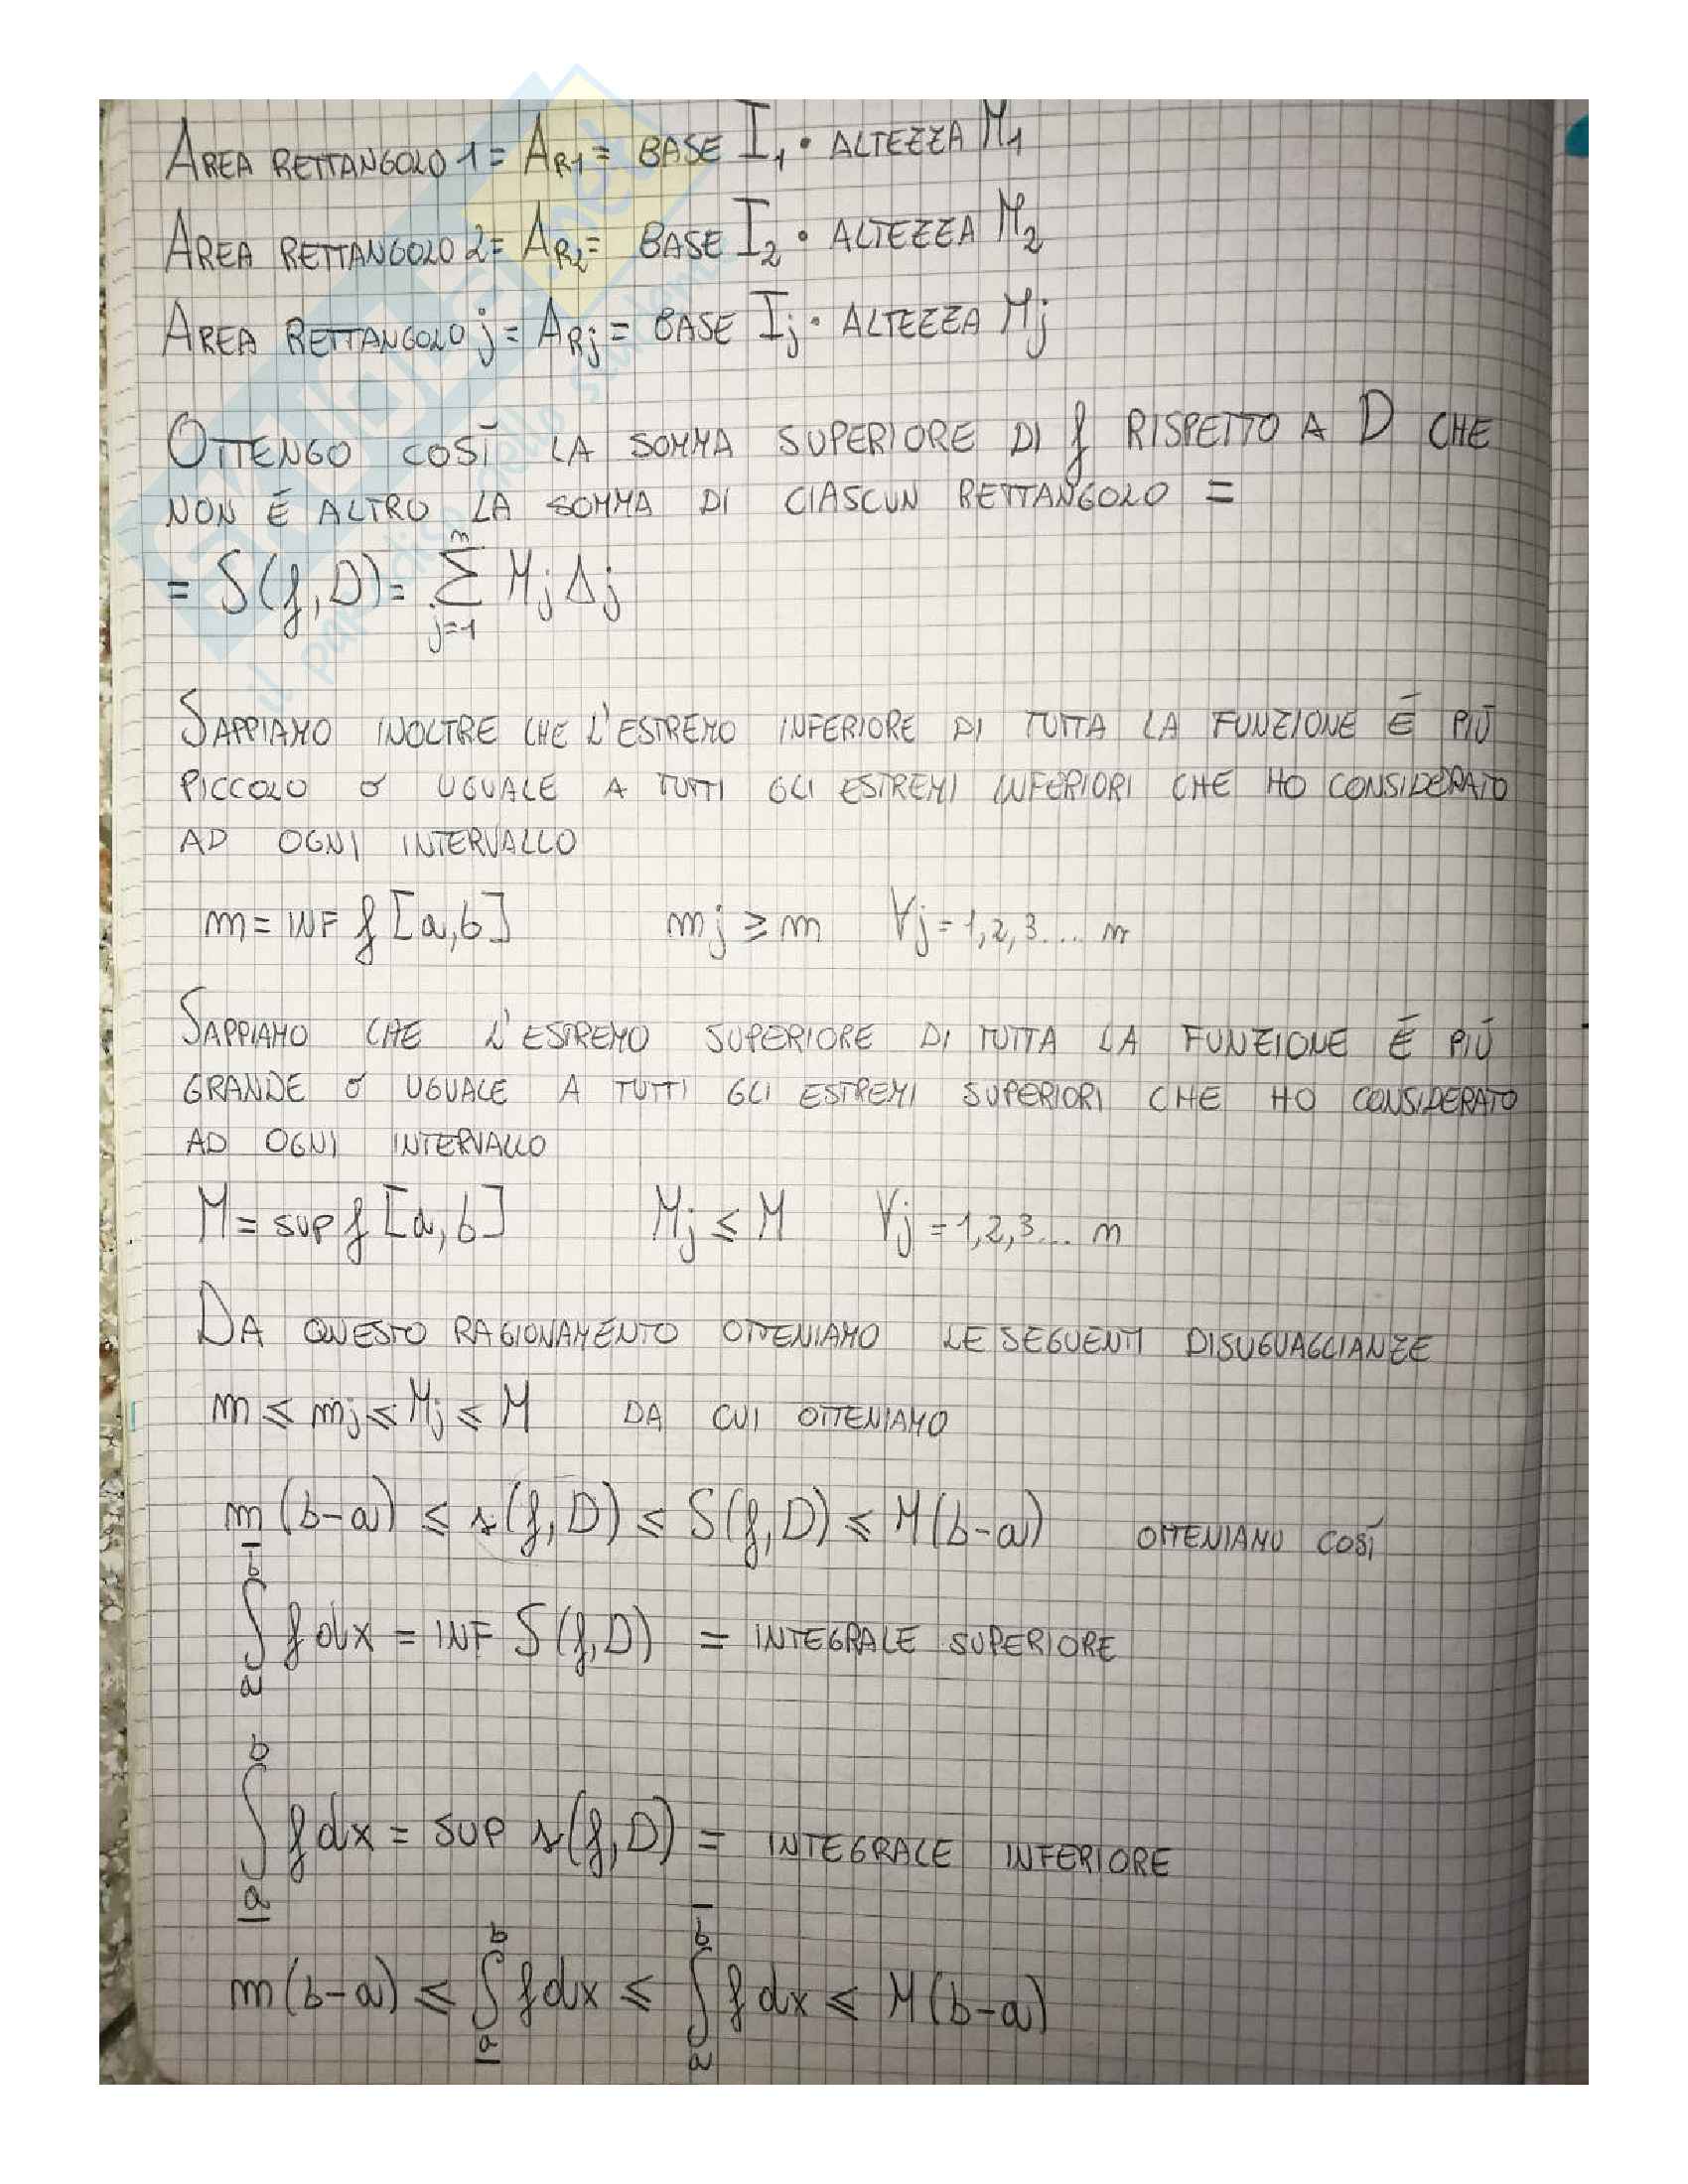 AREA RETTANGOLO 1 = A_R1 = BASE I_1 · ALTEZZA M_1
AREA RETTANGOLO 2 = A_R2 = BASE I_2 · ALTEZZA M_2
AREA RETTANGOLO j = A_Rj = BASE I_j · ALTEZZA M_j
OTTENGO COSÌ LA SOMMA SUPERIORE DI f RISPETTO A D CHE
NON È ALTRO LA SOMMA DI CIASCUN RETTANGOLO =
= S(f,D) = ∑_{j=1}^{n} M_j Δ_j
SAPPIAMO INOLTRE CHE L'ESTREMO INFERIORE DI TUTTA LA FUNZIONE È PIÙ
PICCOLO O UGUALE A TUTTI GLI ESTREMI INFERIORI CHE HO CONSIDERATO
AD OGNI INTERVALLO
m = INF f [a,b] m_j ≥ m ∀j = 1,2,3.... n
SAPPIAMO CHE L'ESTREMO SUPERIORE DI TUTTA LA FUNZIONE È PIÙ
GRANDE O UGUALE A TUTTI GLI ESTREMI SUPERIORI CHE HO CONSIDERATO
AD OGNI INTERVALLO
M = SUP f [a,b] M_j ≤ M ∀j = 1,2,3... n
DA QUESTO RAGIONAMENTO OTTENIAMO LE SEGUENTI DISUGUAGLIANZE
m ≤ m_j ≤ M_j ≤ M DA CUI OTTENIAMO
m(b-a) ≤ s(f,D) ≤ S(f,D) ≤ M(b-a) OTTENIAMO COSÌ
∫_a^b̅ f dx = INF S(f,D) = INTEGRALE SUPERIORE
∫_a̲^b f dx = SUP s(f,D) = INTEGRALE INFERIORE
m(b-a) ≤ ∫_a̲^b f dx ≤ ∫_a^b̅ f dx ≤ M(b-a)